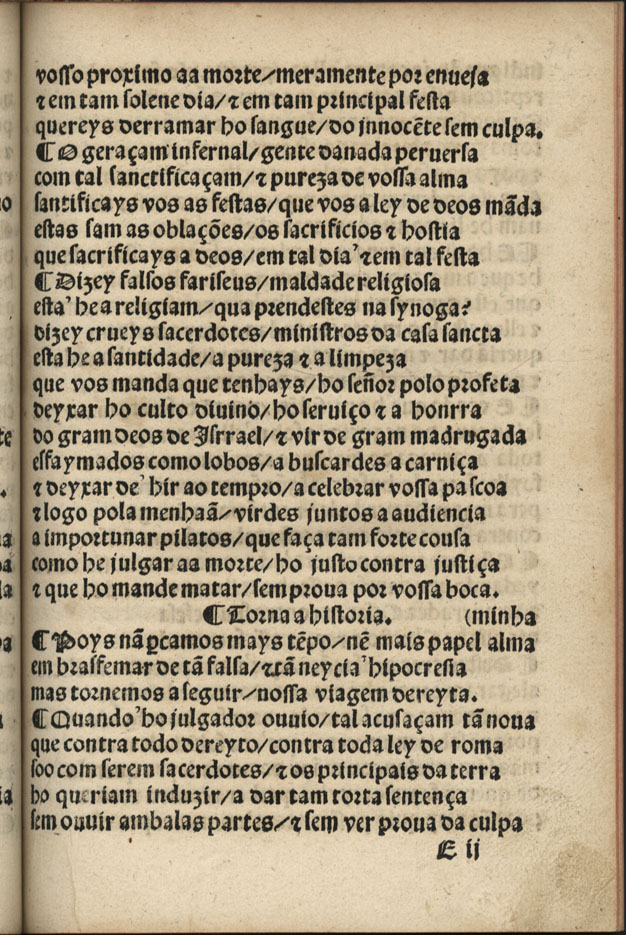 vosso proximo aa morte/meramente por enueja
⁊ em tam solene dia/⁊ em tam principal festa
quereys derramar ho sangue/do jnnocẽte sem culpa.
¶O geraçam infernal/gente danada peruersa
com tal sanctificaçam/⁊ pureza de vossa alma
santificays vos as festas/que vos a ley de deos mãda
estas sam as oblações/os sacrificios ⁊ hostia
que sacrificays a deos/em tal dia'⁊ em tal festa
¶Dizey falsos fariseus/maldade religiosa
esta' he a religiam/qua prendestes na synoga?
dizey crueys sacerdotes/ministros da casa sancta
esta he a santidade/a pureza ⁊ a limpeza
que vos manda que tenhays/ho señor polo profeta
deyxar ho culto diuino/ho seruiço ⁊ a honrra
do gram deos de Jsrrael/⁊ vir de gram madrugada
esfaymados como lobos/a buscardes a carniça
⁊ deyxar de' hir ao tempro/a celebrar vossa pascoa
⁊ logo pola menhaã/virdes juntos a audiencia
a importunar pilatos/que faça tam forte cousa
como he julgar aa morte/ho justo contra justiça
⁊ que ho mande matar/sem proua por vossa boca.
¶Torna a historia. (minha
¶Poys nã ꝑcamos mays tẽpo/nẽ mais papel alma
em brasfemar de tã falsa/⁊ tã neycia' hipocresia
mas tornemos a seguir/nossa viagem dereyta.
¶Quando'ho julgador ouuio/tal acusaçam tã noua
que contra todo dereyto/contra toda ley de roma
soo com serem sacerdotes/⁊ os principais da terra
ho queriam induzir/a dar tam torta sentença
sem ouuir ambalas partes/⁊ sem ver proua da culpa
E ij